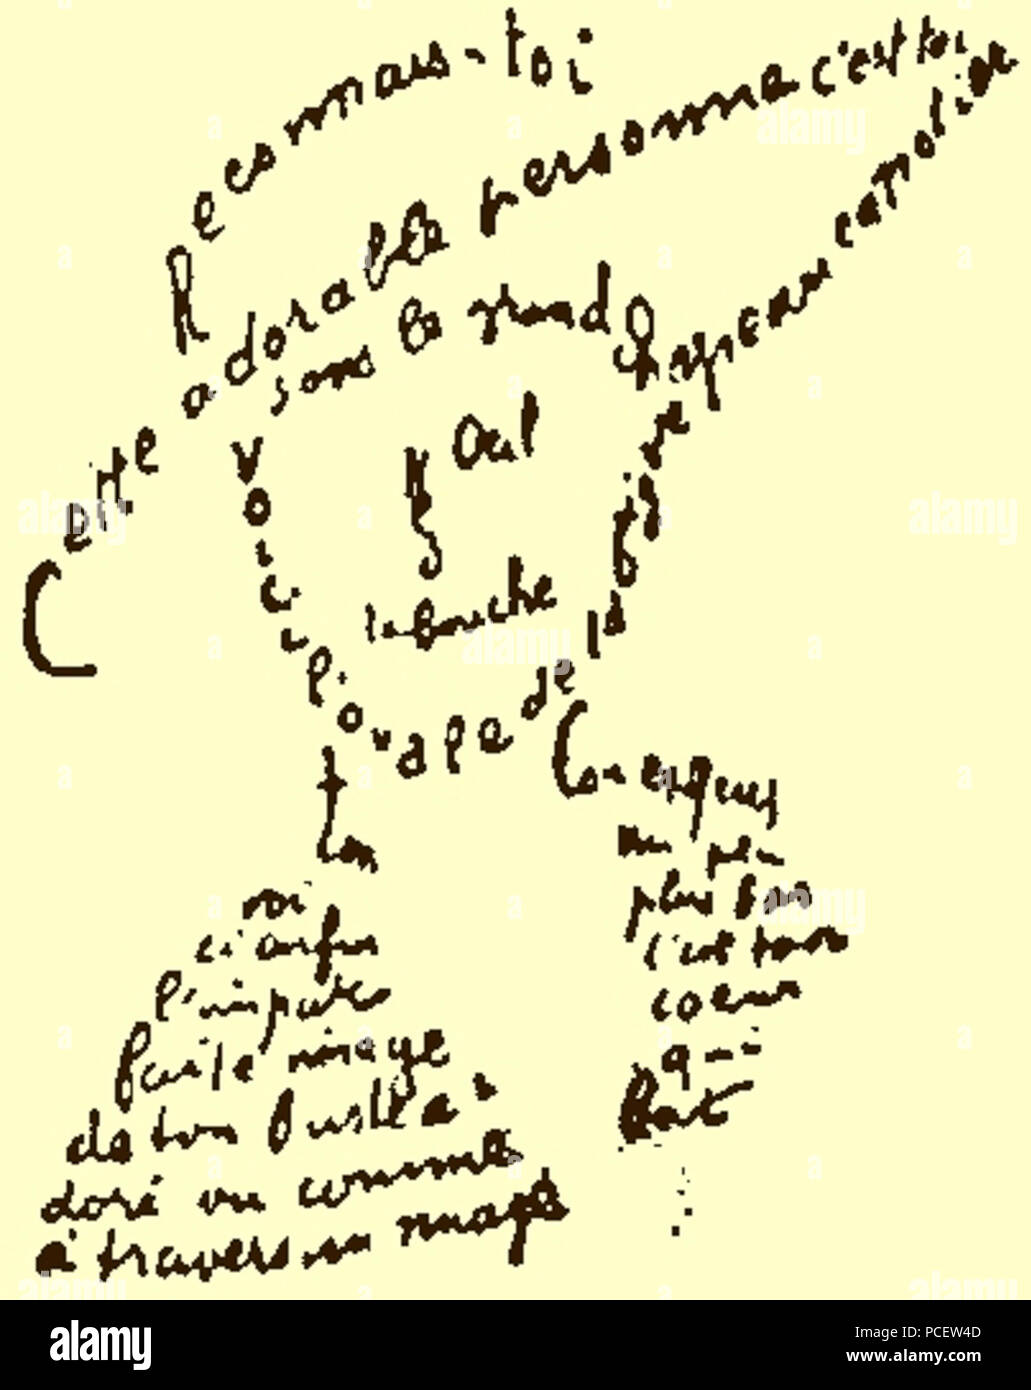 Reconnais-toi
Cette adorable personne c'est toi
sous le grand chapeau canotier
Oeil
Nez
la bouche
Voici l'ovale de ta figure
Ton
Cou exquis
voi
ci enfin
l'impar
faite image
de ton buste a
doré vu comme
à travers un nuage
un peu
plus bas
c'est ton
coeur
qui
bat
alamy
Image ID: PCEW4D
www.alamy.com